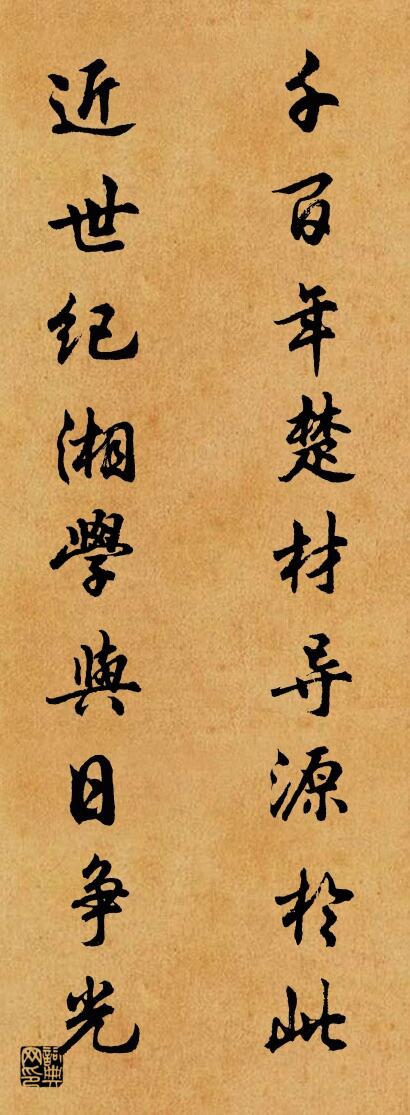 千百年楚材导源於此
近世纪湘學與日争光